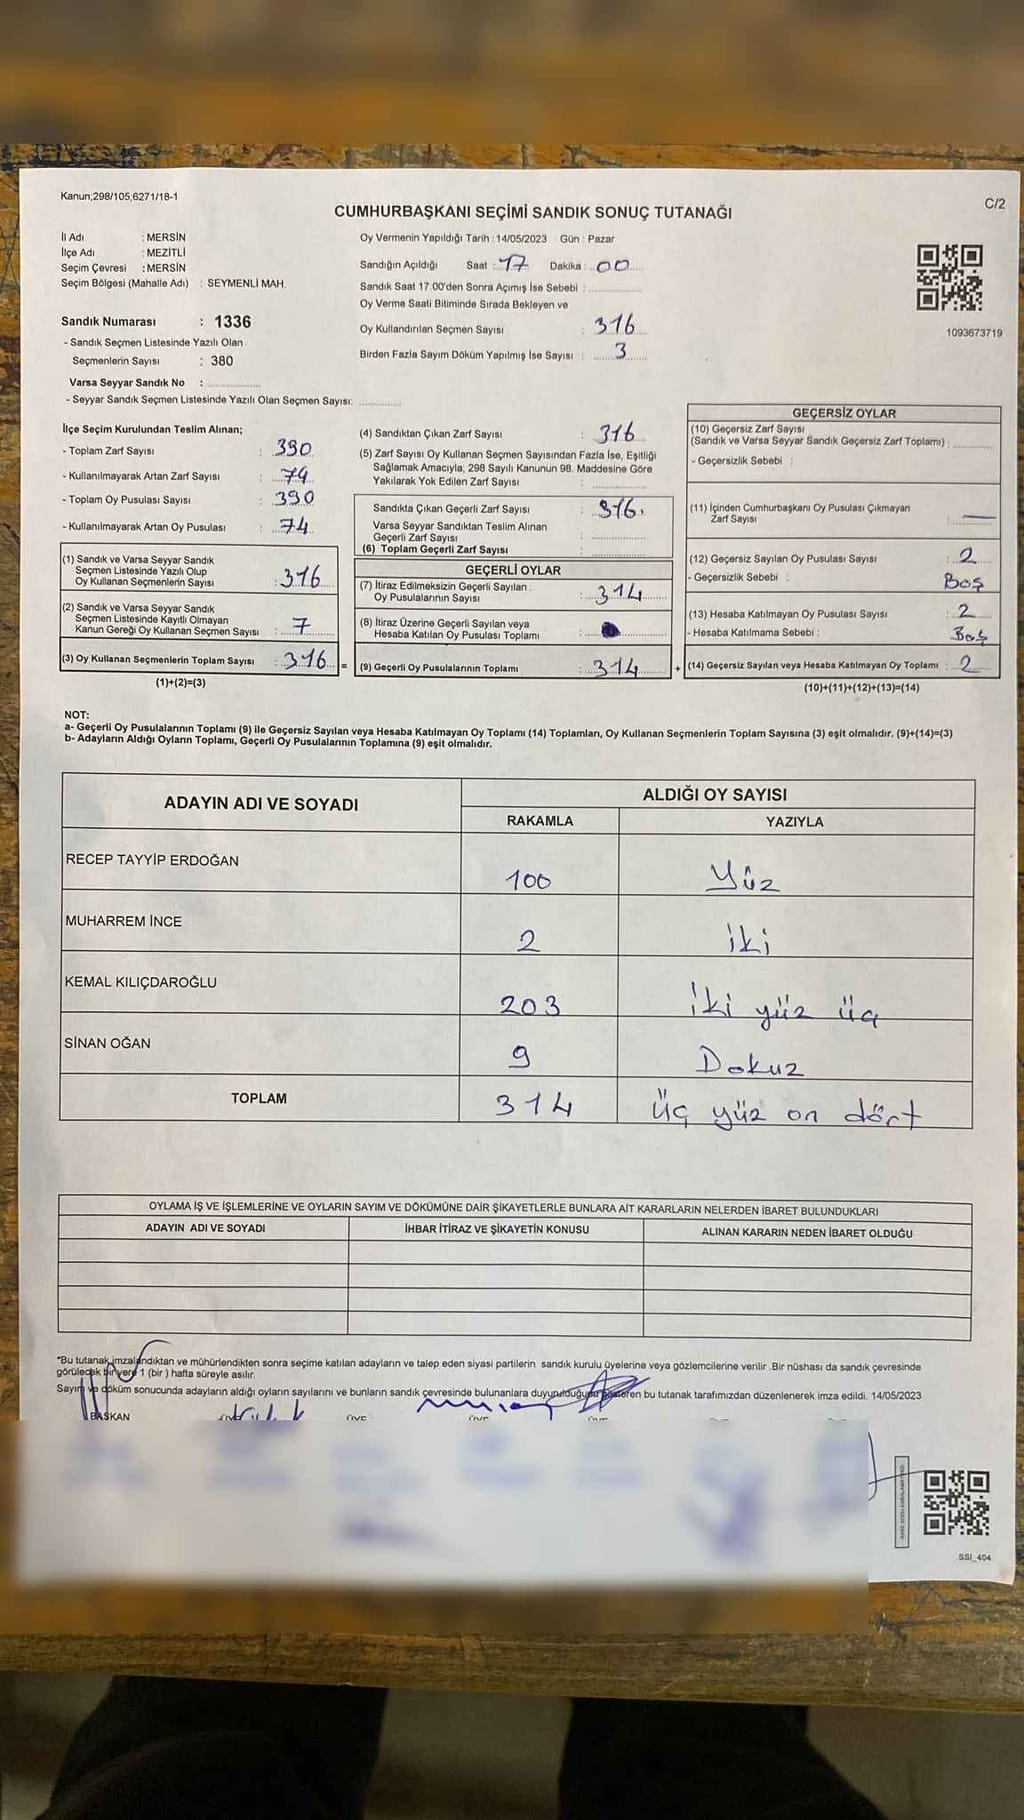 Kanun;298/105,6271/18-1
C/2
CUMHURBAŞKANI SEÇİMİ SANDIK SONUÇ TUTANAĞI
İl Adı : MERSİN
İlçe Adı : MEZİTLİ
Seçim Çevresi : MERSİN
Seçim Bölgesi (Mahalle Adı) : SEYMENLİ MAH.
Sandık Numarası : 1336
- Sandık Seçmen Listesinde Yazılı Olan
Seçmenlerin Sayısı : 380
Varsa Seyyar Sandık No :
- Seyyar Sandık Seçmen Listesinde Yazılı Olan Seçmen Sayısı:
Oy Vermenin Yapıldığı Tarih : 14/05/2023 Gün : Pazar
Sandığın Açıldığı Saat : 17 Dakika : 00
Sandık Saat 17:00'den Sonra Açımış İse Sebebi :
Oy Verme Saati Bitiminde Sırada Bekleyen ve
Oy Kullandırılan Seçmen Sayısı : 316
Birden Fazla Sayım Döküm Yapılmış İse Sayısı : 3
1093673719
İlçe Seçim Kurulundan Teslim Alınan;
- Toplam Zarf Sayısı : 390
- Kullanılmayarak Artan Zarf Sayısı : 74
- Toplam Oy Pusulası Sayısı : 390
- Kullanılmayarak Artan Oy Pusulası : 74
(1) Sandık ve Varsa Seyyar Sandık
Seçmen Listesinde Yazılı Olup
Oy Kullanan Seçmenlerin Sayısı : 316
(2) Sandık ve Varsa Seyyar Sandık
Seçmen Listesinde Kayıtlı Olmayan
Kanun Gereği Oy Kullanan Seçmen Sayısı : 7
(3) Oy Kullanan Seçmenlerin Toplam Sayısı : 316 =
(1)+(2)=(3)
(4) Sandıktan Çıkan Zarf Sayısı : 316
(5) Zarf Sayısı Oy Kullanan Seçmen Sayısından Fazla İse, Eşitliği
Sağlamak Amacıyla; 298 Sayılı Kanunun 98. Maddesine Göre
Yakılarak Yok Edilen Zarf Sayısı :
Sandıkta Çıkan Geçerli Zarf Sayısı : 316
Varsa Seyyar Sandıktan Teslim Alınan
Geçerli Zarf Sayısı :
(6) Toplam Geçerli Zarf Sayısı :
GEÇERLİ OYLAR
(7) İtiraz Edilmeksizin Geçerli Sayılan
Oy Pusulalarının Sayısı : 314
(8) İtiraz Üzerine Geçerli Sayılan veya
Hesaba Katılan Oy Pusulası Toplamı :
(9) Geçerli Oy Pusulalarının Toplamı : 314 +
GEÇERSİZ OYLAR
(10) Geçersiz Zarf Sayısı
(Sandık ve Varsa Seyyar Sandık Geçersiz Zarf Toplamı) :
- Geçersizlik Sebebi :
(11) İçinden Cumhurbaşkanı Oy Pusulası Çıkmayan
Zarf Sayısı : —
(12) Geçersiz Sayılan Oy Pusulası Sayısı : 2
- Geçersizlik Sebebi : Boş
(13) Hesaba Katılmayan Oy Pusulası Sayısı : 2
- Hesaba Katılmama Sebebi : Boş
(14) Geçersiz Sayılan veya Hesaba Katılmayan Oy Toplamı : 2
(10)+(11)+(12)+(13)=(14)
NOT:
a- Geçerli Oy Pusulalarının Toplamı (9) ile Geçersiz Sayılan veya Hesaba Katılmayan Oy Toplamı (14) Toplamları, Oy Kullanan Seçmenlerin Toplam Sayısına (3) eşit olmalıdır. (9)+(14)=(3)
b- Adayların Aldığı Oyların Toplamı, Geçerli Oy Pusulalarının Toplamına (9) eşit olmalıdır.
ADAYIN ADI VE SOYADI
ALDIĞI OY SAYISI
RAKAMLA YAZIYLA
RECEP TAYYİP ERDOĞAN 100 Yüz
MUHARREM İNCE 2 iki
KEMAL KILIÇDAROĞLU 203 İki yüz üç
SİNAN OĞAN 9 Dokuz
TOPLAM 314 üç yüz on dört
OYLAMA İŞ VE İŞLEMLERİNE VE OYLARIN SAYIM VE DÖKÜMÜNE DAİR ŞİKAYETLERLE BUNLARA AİT KARARLARIN NELERDEN İBARET BULUNDUKLARI
ADAYIN ADI VE SOYADI İHBAR İTİRAZ VE ŞİKAYETİN KONUSU ALINAN KARARIN NEDEN İBARET OLDUĞU
*Bu tutanak imzalandıktan ve mühürlendikten sonra seçime katılan adayların ve talep eden siyasi partilerin sandık kurulu üyelerine veya gözlemcilerine verilir .Bir nüshası da sandık çevresinde
görülecek bir yere 1 (bir) hafta süreyle asılır.
Sayım ve döküm sonucunda adayların aldığı oyların sayılarını ve bunların sandık çevresinde bulunanlara duyurulduğunu gösteren bu tutanak tarafımızdan düzenlenerek imza edildi. 14/05/2023
BAŞKAN
SSI_404